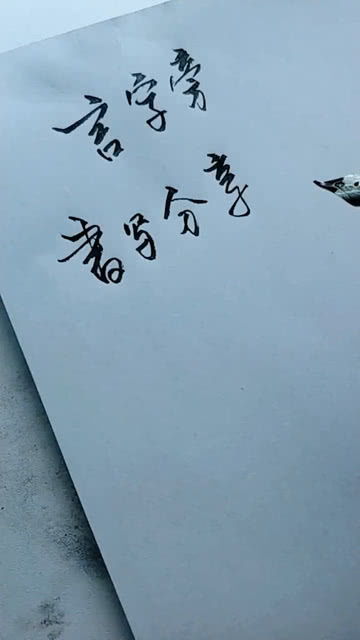 言字旁
書写分享